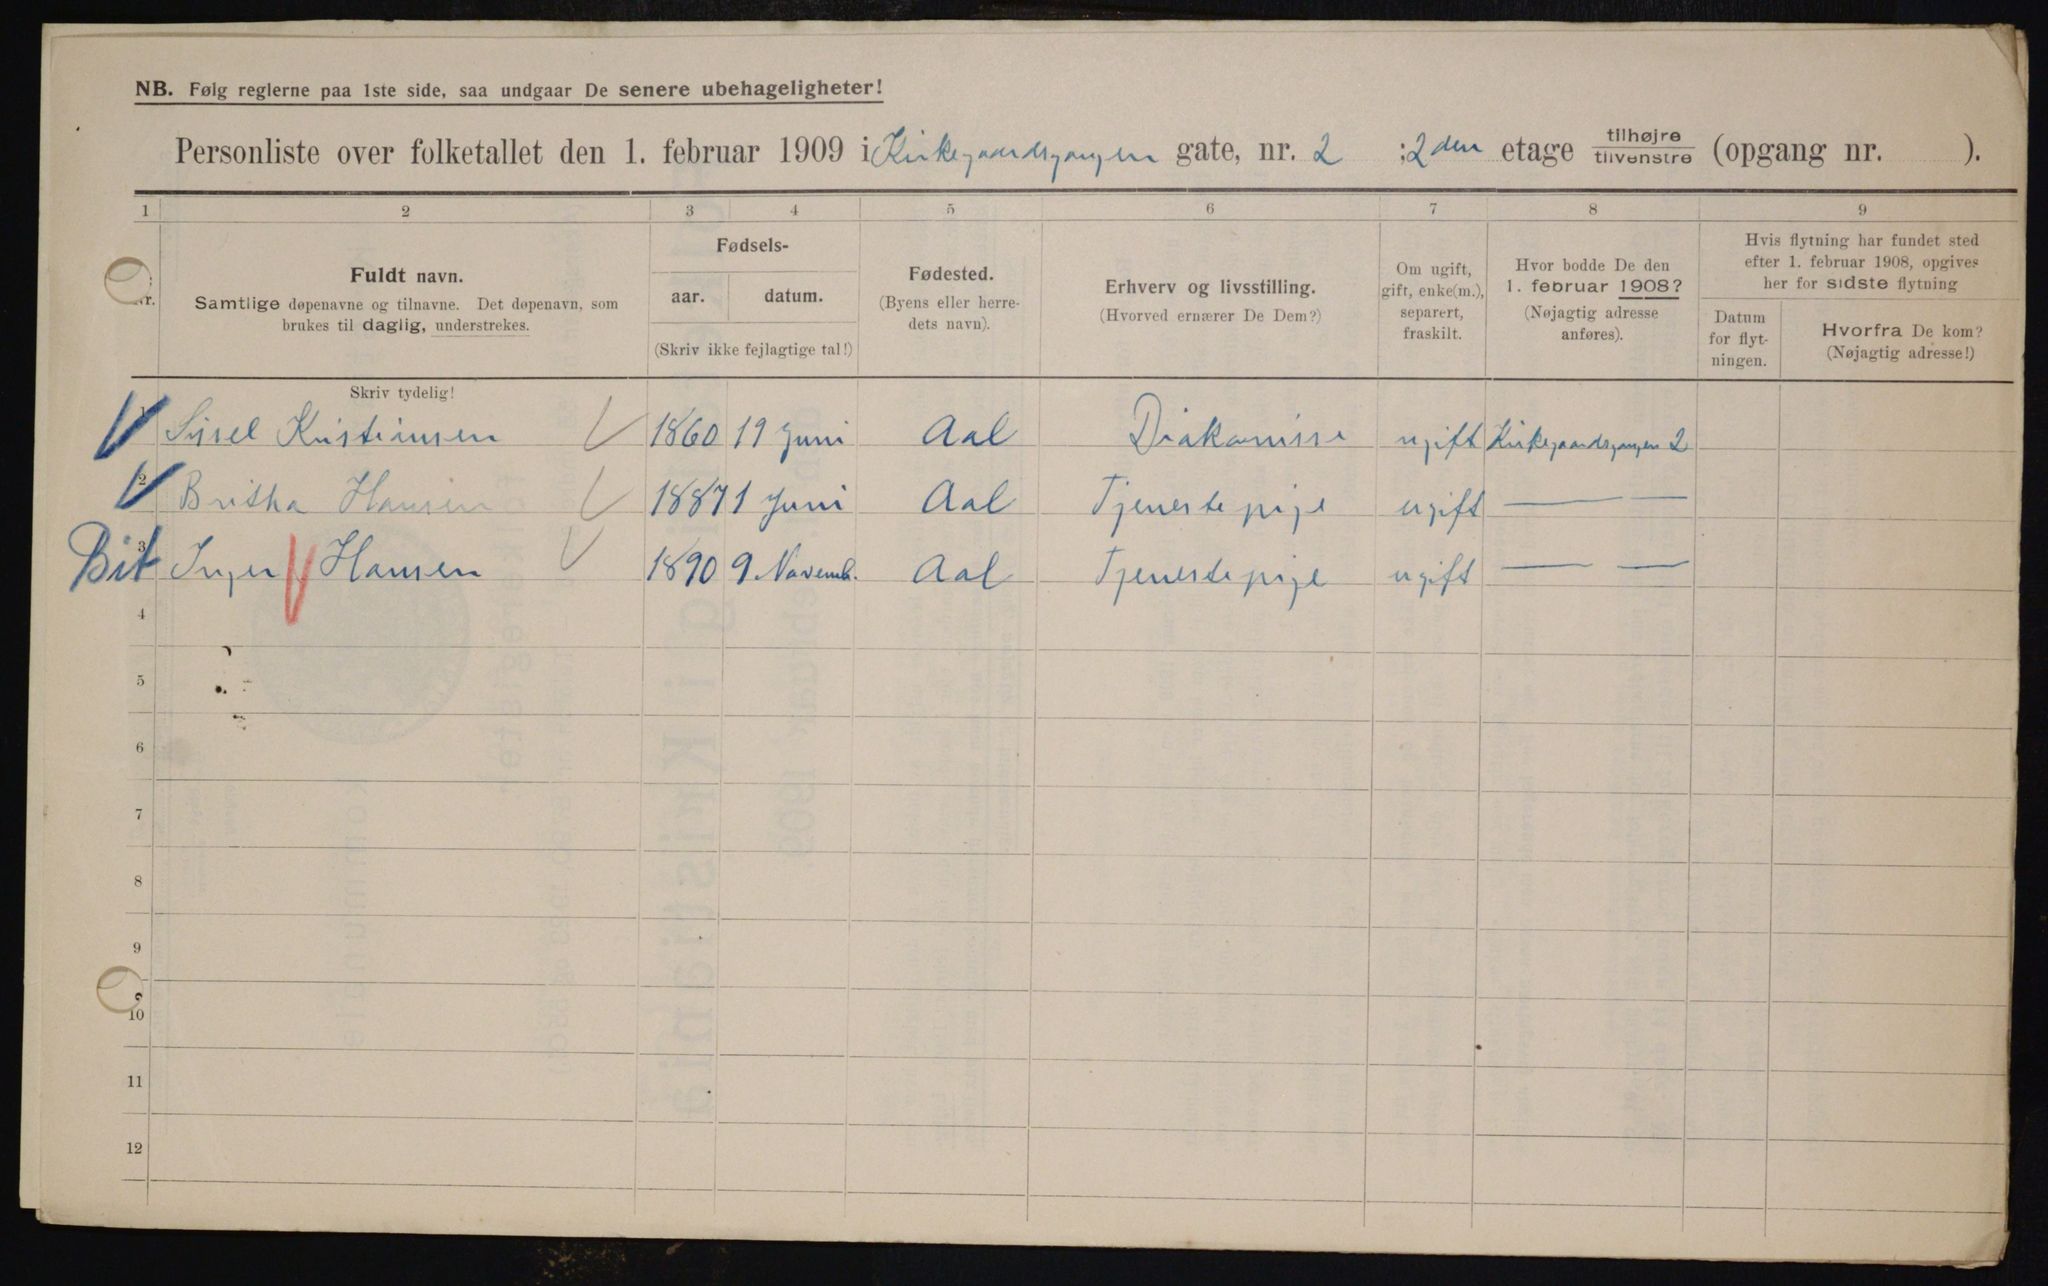 NB. Følg reglerne paa 1ste side, saa undgaar De senere ubehageligheter!
Personliste over folketallet den 1. februar 1909 i Kirkegaardsgangen gate, nr. 2 ; 2den etage tilhøjre / tilvenstre (opgang nr. ).
1 2 3 4 5 6 7 8 9
Fuldt navn.
Samtlige døpenavne og tilnavne. Det døpenavn, som
brukes til daglig, understrekes.
Fødsels-
aar. datum.
(Skriv ikke fejlagtige tal!)
Fødested.
(Byens eller herre-
dets navn).
Erhverv og livsstilling.
(Hvorved ernærer De Dem?)
Om ugift,
gift, enke(m.),
separert,
fraskilt.
Hvor bodde De den
1. februar 1908?
(Nøjagtig adresse
anføres).
Hvis flytning har fundet sted
efter 1. februar 1908, opgives
her for sidste flytning
Datum
for flyt-
ningen.
Hvorfra De kom?
(Nøjagtig adresse!)
Skriv tydelig!
1 Sissel Kristiansen 1860 19 Juni Aal Diakonisse ugift Kirkegaardsgangen 2
2 Britha Hansen 1887 1 Juni Aal Tjenestepige ugift — —
Bit 3 Inger Hansen 1890 9 Novemb. Aal Tjenestepige ugift — —
4
5
6
7
8
9
10
11
12